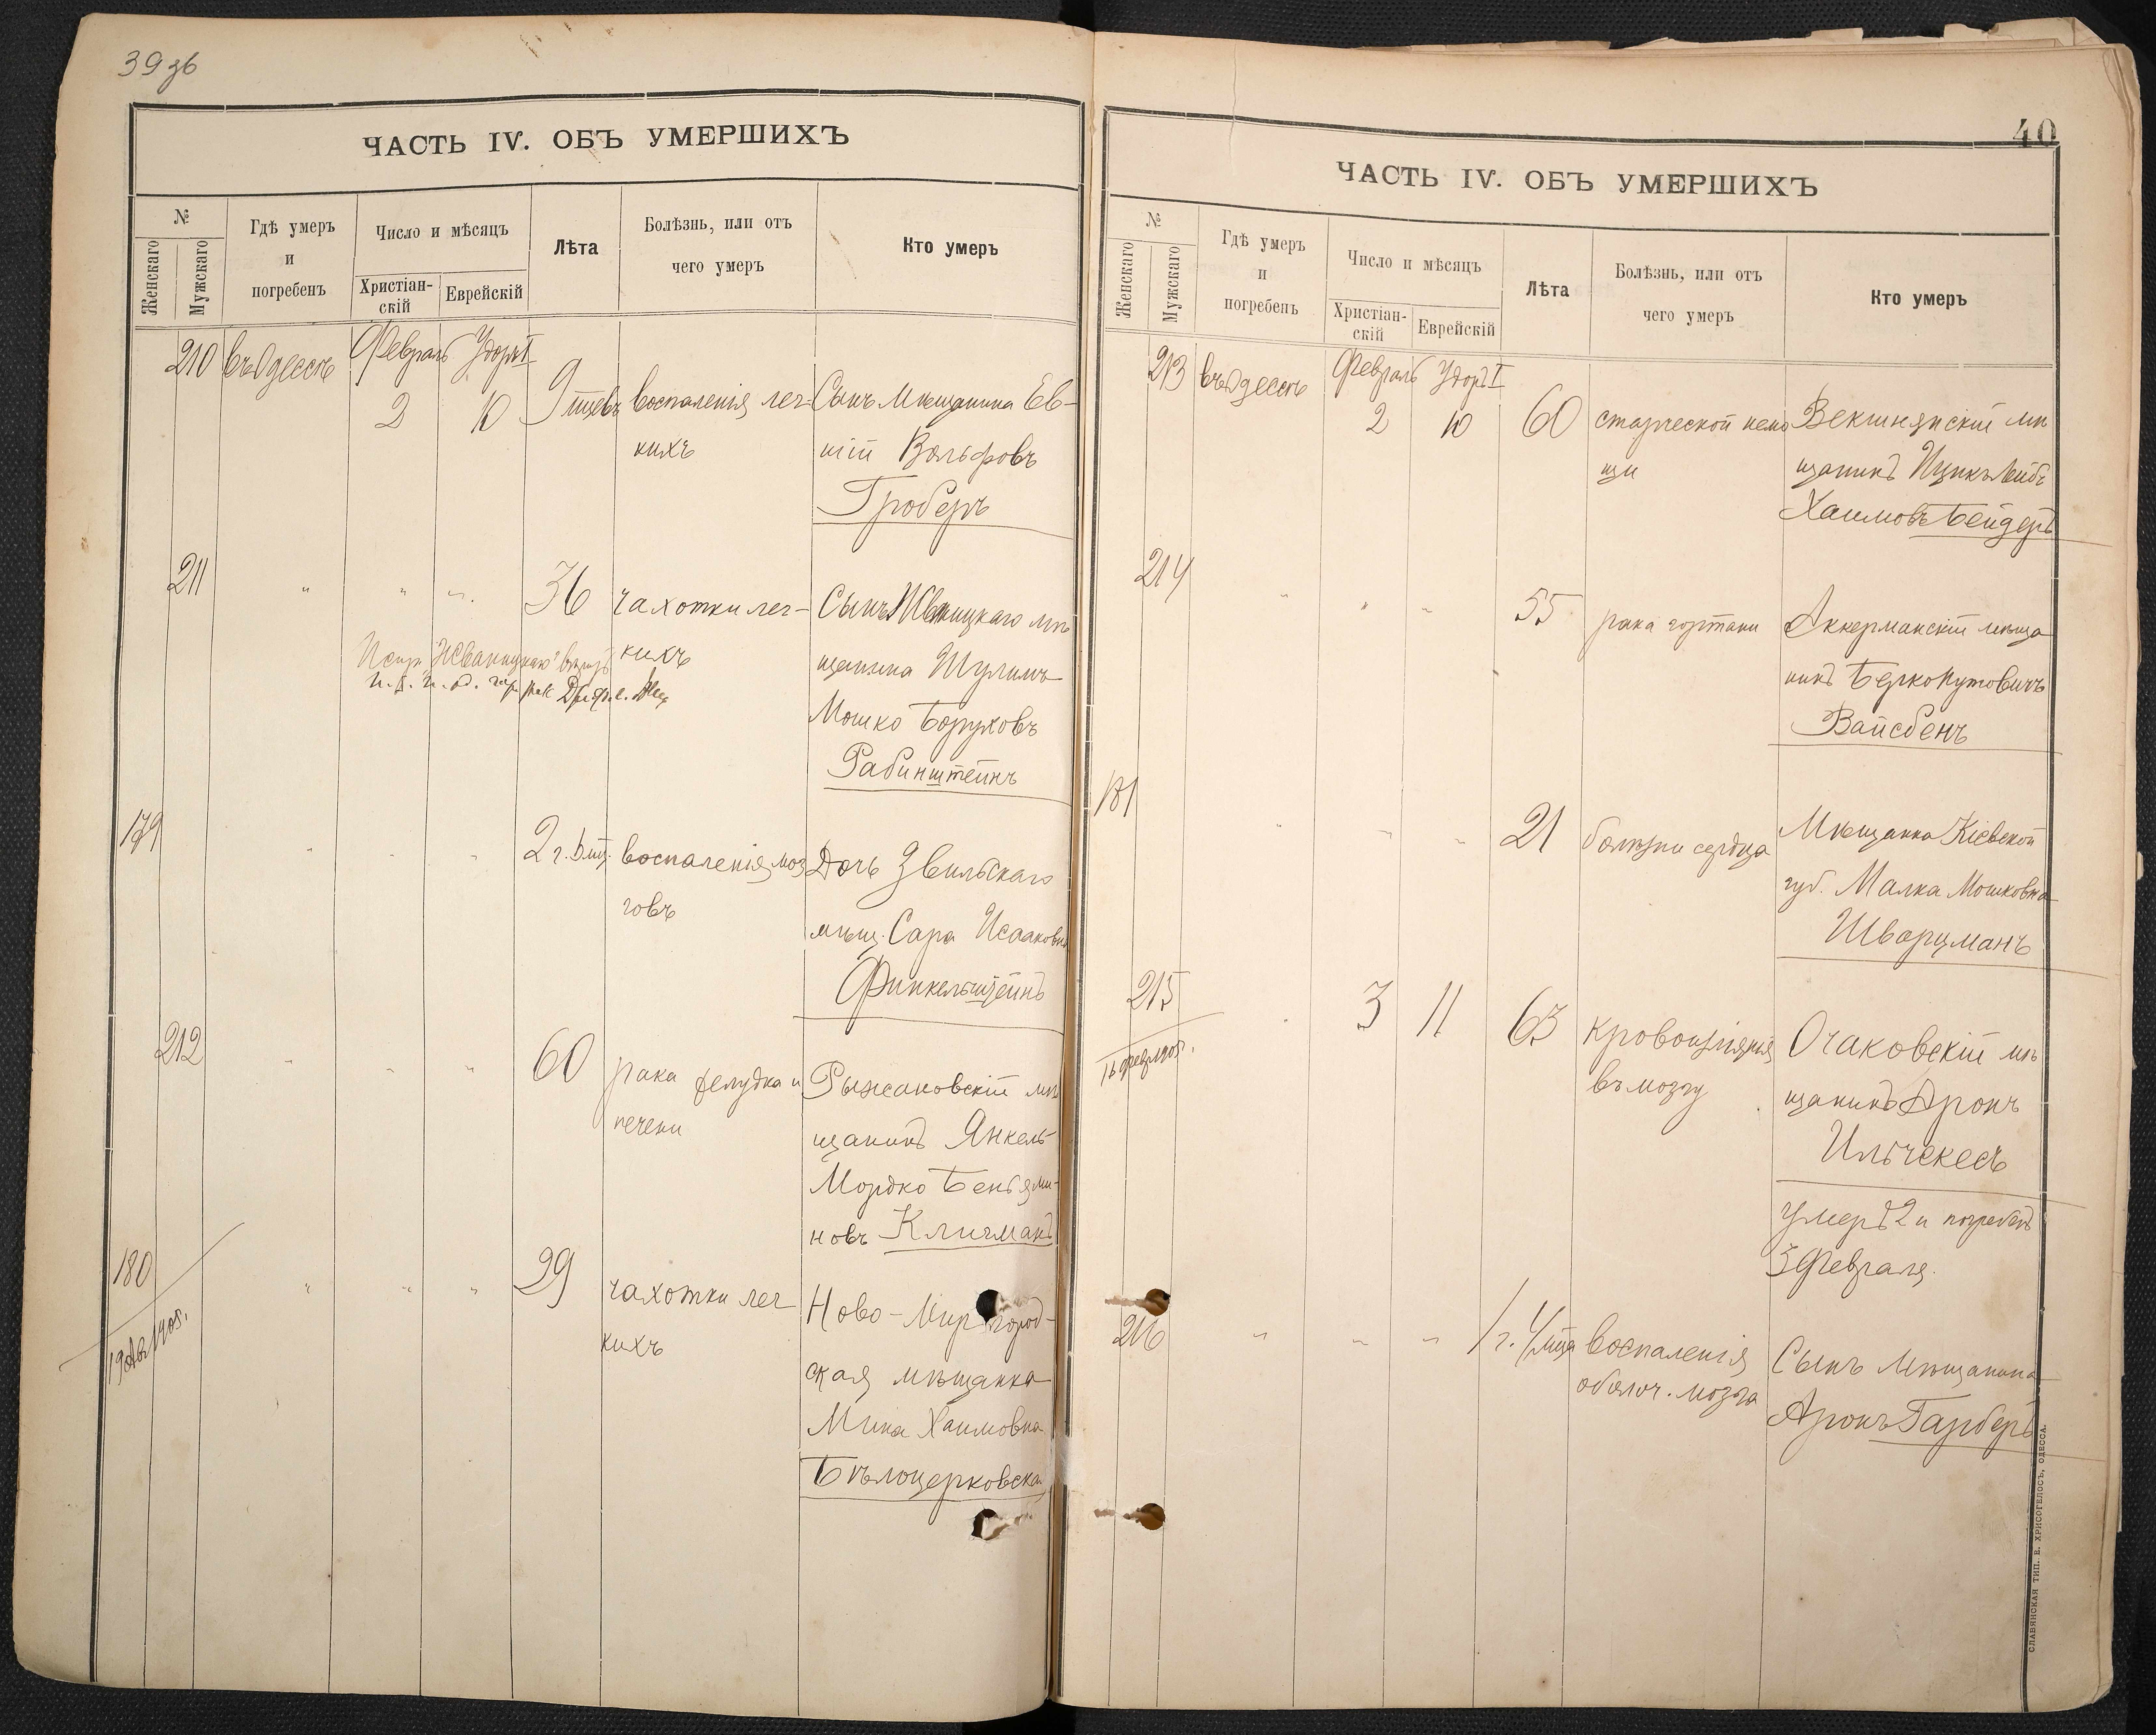 39 зв
ЧАСТЬ IV. ОБЪ УМЕРШИХЪ
№
Женскаго
Мужскаго
Гдѣ умеръ
и
погребенъ
Число и мѣсяцъ
Христіан-
скій
Еврейскій
Лѣта
Болѣзнь, или отъ
чего умеръ
Кто умеръ
210 въ Одессѣ Февраль Удоръ I
2 10 9 мцевъ воспаленія лег- Сынъ мѣщанина Ев-
кихъ ній Вольфовъ
Гроберъ
211 " " " 36 чахотки лег- Сынъ мѣ
кихъ щанина Шулимъ
Испр. "Жванецкаго"
Мошко Боруховъ
Рабинштейнъ
179 " " " 2 г. мц. воспаленія моз Дочь Звильскаго
говъ мѣщ. Сара Исааковна
Финкельштейнъ
212 " " " 60 рака желудка и Рыжановскій мѣ
печени щанинъ Янкель
Мордко Беньями-
новъ Клигманъ
180 " " " 29 чахотки лег Ново-Миргород-
кихъ ская мѣщанка
Мина Хаимовна
Бѣлоцерковская
40
ЧАСТЬ IV. ОБЪ УМЕРШИХЪ
№
Женскаго
Мужскаго
Гдѣ умеръ
и
погребенъ
Число и мѣсяцъ
Христіан-
скій
Еврейскій
Лѣта
Болѣзнь, или отъ
чего умеръ
Кто умеръ
213 въ Одессѣ Февраль Удоръ I
2 10 60 старческой немо Векшнянскій мѣ
щи щанинъ Ицикъ Лейбъ
Хаимовъ Бейдеръ
214 " " " 55 рака гортани Аккерманскій мѣща
нинъ Берко Нутовичъ
Вайсбенъ
181 " " " 21 болѣзни сердца Мѣщанка Кіевской
губ. Малка Мошковна
Шварцманъ
215 " 3 11 63 кровоизліянія Очаковскій мѣ
въ мозгу щанинъ Аронъ
Ильчекесъ
умеръ 2 и погребенъ
3 Февраля.
216 " " " 1 г. 4 мца воспаленія Сынъ мѣщанина
оболоч. мозга Аронъ Гарберъ
СЛАВЯНСКАЯ ТИП. Е. ХРИСОГЕЛОСЪ, ОДЕССА.